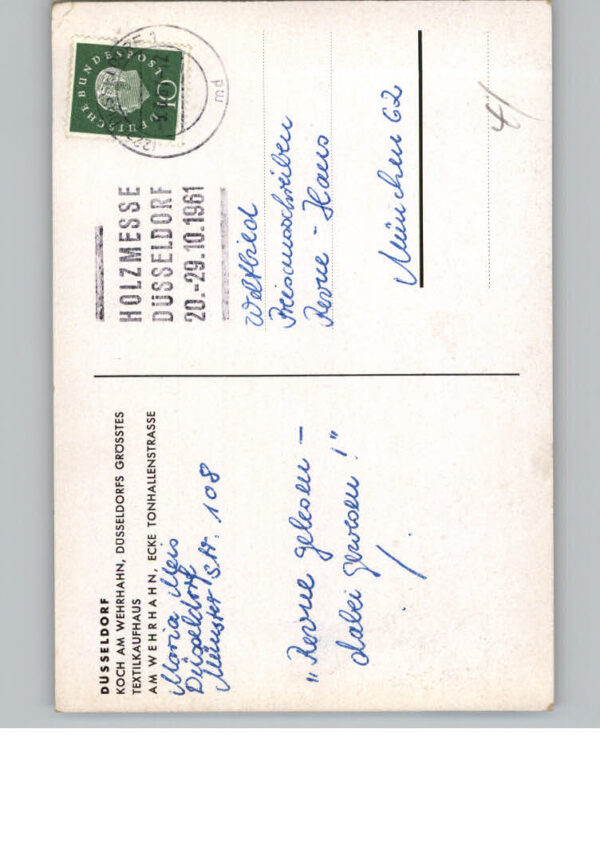 DÜSSELDORF
KOCH AM WEHRHAHN, DÜSSELDORFS GRÖSSTES
TEXTILKAUFHAUS
AM WEHRHAHN, ECKE TONHALLENSTRASSE
Maria Meis
Düsseldorf
Münster Str. 108
"Revue gelesen –
dabei gewesen!"
DEUTSCHE BUNDESPOST
10
md
HOLZMESSE
DÜSSELDORF
20.-29.10.1961
Weltbild
Preisausschreiben
Revue - Haus
München 62